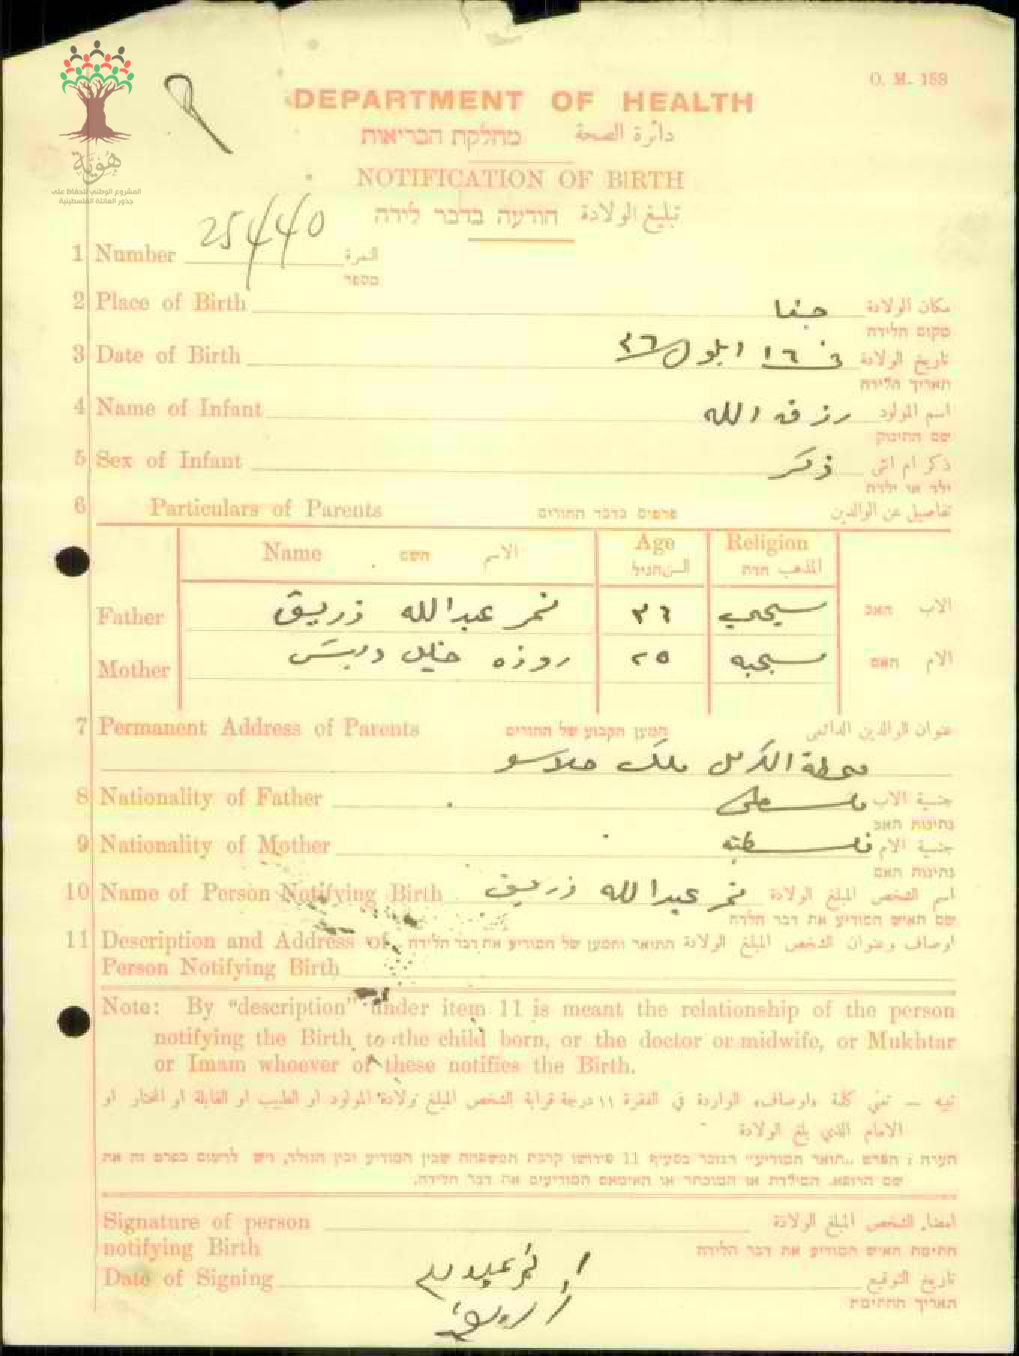 هُويّة
المشروع الوطني للحفاظ على
جذور العائلة الفلسطينية
O. M. 158
DEPARTMENT OF HEALTH
מחלקת הבריאות دائرة الصحة
NOTIFICATION OF BIRTH
הודעה בדבר לידה تبليغ الولادة
1 Number 25440 النمرة
מספר
2 Place of Birth حيفا مكان الولادة
מקום הלידה
3 Date of Birth في ١٦ ايلول ٣٦ تاريخ الولادة
תאריך הלידה
4 Name of Infant رزق الله اسم المولود
שם התינוק
5 Sex of Infant ذكر ذكر ام انثى
ילד או ילדה
6 Particulars of Parents פרטים בדבר ההורים تفاصيل عن الوالدين
Name השם الاسم Age السن הגיל Religion المذهب הדת
Father نمر عبدالله زريق ٣٦ مسيحي האב الاب
Mother روزه خليل ٢٥ مسيحيه האם الام
7 Permanent Address of Parents המען הקבוע של ההורים عنوان الوالدين الدائمي
محطة الكرمل ملك
8 Nationality of Father فلسطيني جنسية الاب
נתינות האב
9 Nationality of Mother فلسطينية جنسية الام
נתינות האם
10 Name of Person Notifying Birth نمر عبدالله زريق اسم الشخص المبلغ الولادة
שם האיש המודיע את דבר הלדה
11 Description and Address of התואר והמען של המודיע את דבר הלידה اوصاف وعنوان الشخص المبلغ الولادة
Person Notifying Birth
Note: By “description” under item 11 is meant the relationship of the person
notifying the Birth to the child born, or the doctor or midwife, or Mukhtar
or Imam whoever of these notifies the Birth.
تنبيه — تعني كلمة «اوصاف» الواردة في الفقرة ١١ درجة قرابة الشخص المبلغ ولادة المولود او الطبيب او القابلة او المختار او
الامام الذي بلغ الولادة
הערה: הפרט „תואר המודיע״ הנזכר בסעיף 11 פירושו קרבת המשפחה שבין המודיע ובין הנולד, ויש לרשום בפרט זה את
שם הרופא, המילדת או המוכתר או האימאם המודיעים את דבר הלידה.
Signature of person امضاء الشخص المبلغ الولادة
notifying Birth חתימת האיש המודיע את דבר הלידה
Date of Signing نمر عبدالله تاريخ التوقيع
תאריך החתימה